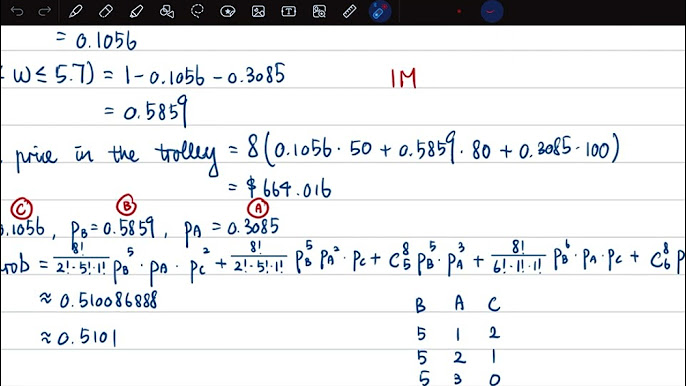 = 0.1056
< W ≤ 5.7) = 1 - 0.1056 - 0.3085
1M
= 0.5859
price in the trolley = 8(0.1056 · 50 + 0.5859 · 80 + 0.3085 · 100)
= $664.016
C B A
0.1056, p_B = 0.5859, p_A = 0.3085
rob = 8!/(2!·5!·1!) p_B^5 · p_A · p_C^2 + 8!/(2!·5!·1!) p_B^5 p_A^2 · p_C + C_5^8 p_B^5 · p_A^3 + 8!/(6!·1!·1!) p_B^6 · p_A · p_C + C_6^8 p
≈ 0.510086888
B A C
≈ 0.5101
5 1 2
5 2 1
5 3 0